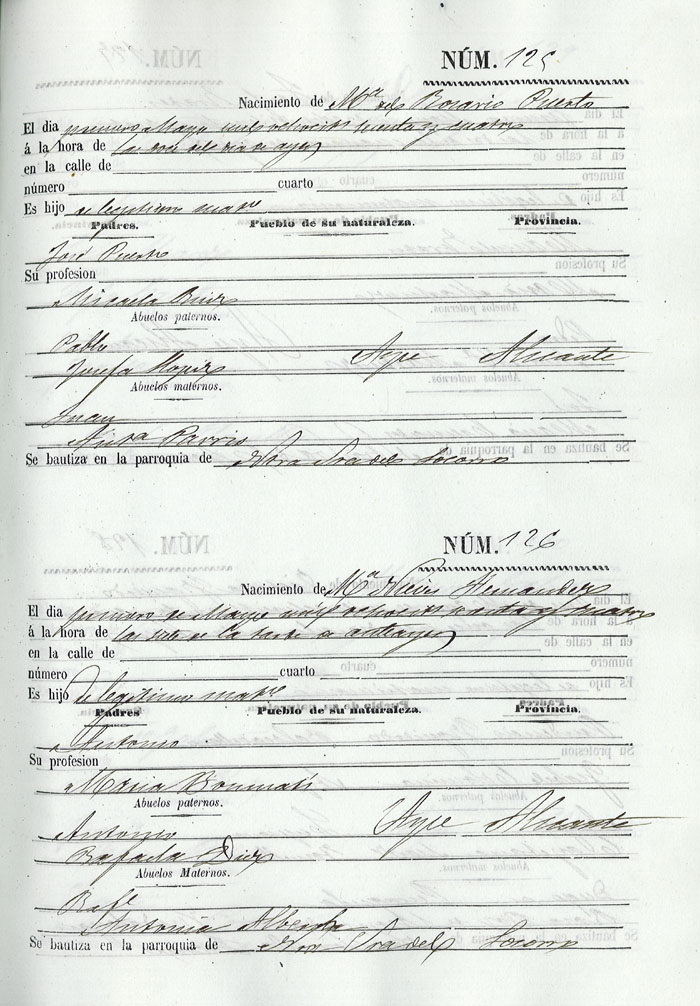 NÚM. 125
Nacimiento de Mª del Rosario Puerto
El dia primero Mayo mil ochocientos y cuatro
á la hora de las once del dia de ayer
en la calle de
número cuarto
Es hijo de legitimo matr.e
Padres. Pueblo de su naturaleza. Provincia.
José Puerto
Su profesion
Micaela
Abuelos paternos.
Pablo
Josefa Aspe Alicante
Abuelos maternos.
Juan
Se bautiza en la parroquia de Ntra Sra del Socorro
NÚM. 126
Nacimiento de Mª Nieves Hernandez
El dia primero de Mayo y cuatro
á la hora de las siete de la tarde de anteayer
en la calle de
número cuarto
Es hijo de legitimo matre
Padres Pueblo de su naturaleza. Provincia.
Antonio
Su profesion
Maria Bonmatí
Abuelos paternos.
Antonio Aspe Alicante
Rafaela Diez
Abuelos Maternos.
Rafl
Antonia Alberola
Se bautiza en la parroquia de Ntra Sra del Socorro